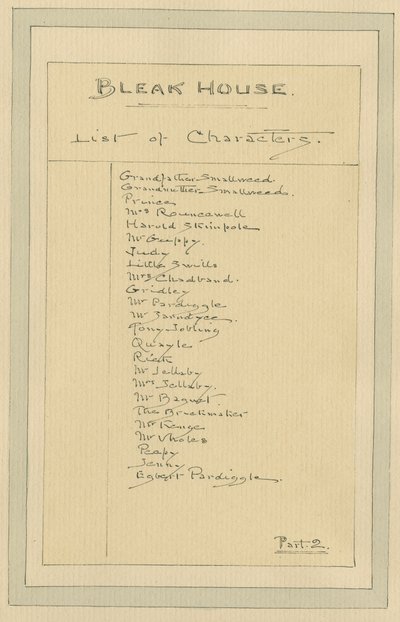 BLEAK HOUSE.
List of Characters.
Grandfather Smallweed.
Grandmother Smallweeds.
Prince
Mrs Rouncewell
Harold Skimpole
Mr Guppy.
Judy
Little Swills
Mrs Chadband.
Gridley
Mr Pardiggle
Mr Jarndyce.
Tony Jobling
Quayle
Rick
Mr Jellaby
Mrs Jellaby.
Mr Bagnet.
The Brickmaker
Mr Kenge
Mr Vholes
Peepy
Jenny
Egbert Pardiggle.
Part. 2.